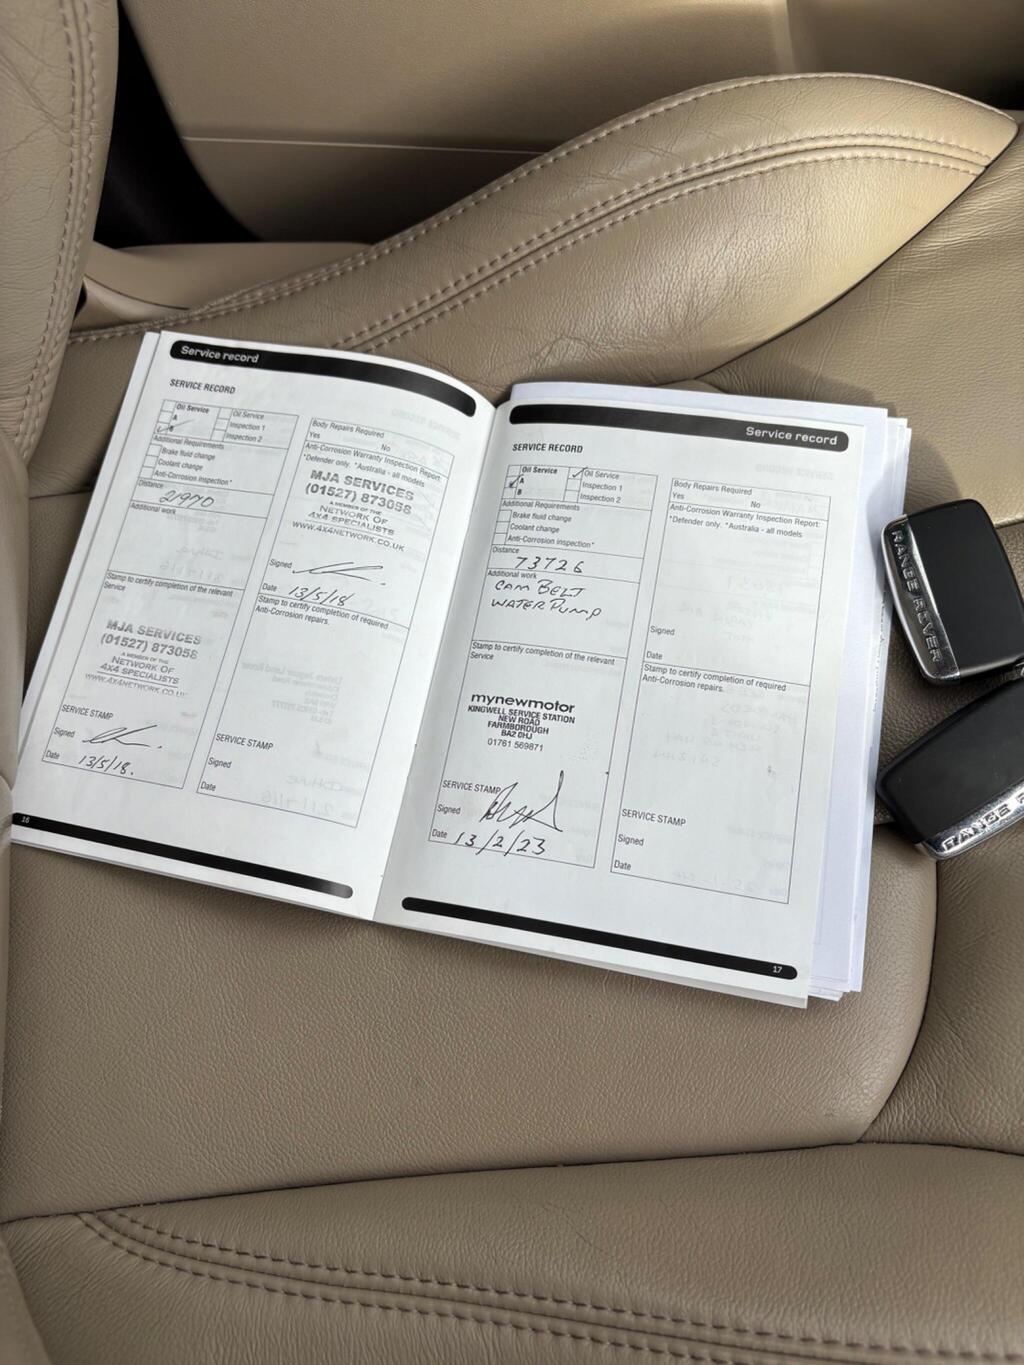 Service record
SERVICE RECORD
Oil Service
A
B
Oil Service
Inspection 1
Inspection 2
Additional Requirements
Brake fluid change
Coolant change
Anti-Corrosion inspection*
Distance
21970
Additional work
Stamp to certify completion of the relevant
Service
MJA SERVICES
(01527) 873058
A MEMBER OF THE
NETWORK OF
4X4 SPECIALISTS
WWW.4X4NETWORK.CO.UK
SERVICE STAMP
Signed
Date
13/5/18.
16
Body Repairs Required
Yes No
Anti-Corrosion Warranty Inspection Report:
*Defender only. *Australia - all models
MJA SERVICES
(01527) 873058
A MEMBER OF THE
NETWORK OF
4X4 SPECIALISTS
WWW.4X4NETWORK.CO.UK
Signed
Date 13/5/18
Stamp to certify completion of required
Anti-Corrosion repairs.
SERVICE STAMP
Signed
Date
Service record
SERVICE RECORD
Oil Service
A
B
Oil Service
Inspection 1
Inspection 2
Additional Requirements
Brake fluid change
Coolant change
Anti-Corrosion inspection*
Distance
73726
Additional work
CAM BELT
WATER PUMP
Stamp to certify completion of the relevant
Service
mynewmotor
KINGWELL SERVICE STATION
NEW ROAD
FARMBOROUGH
BA2 0HJ
01761 569871
SERVICE STAMP
Signed
Date 13/2/23
Body Repairs Required
Yes No
Anti-Corrosion Warranty Inspection Report:
*Defender only. *Australia - all models
Signed
Date
Stamp to certify completion of required
Anti-Corrosion repairs.
SERVICE STAMP
Signed
Date
17
RANGE ROVER
RANGE